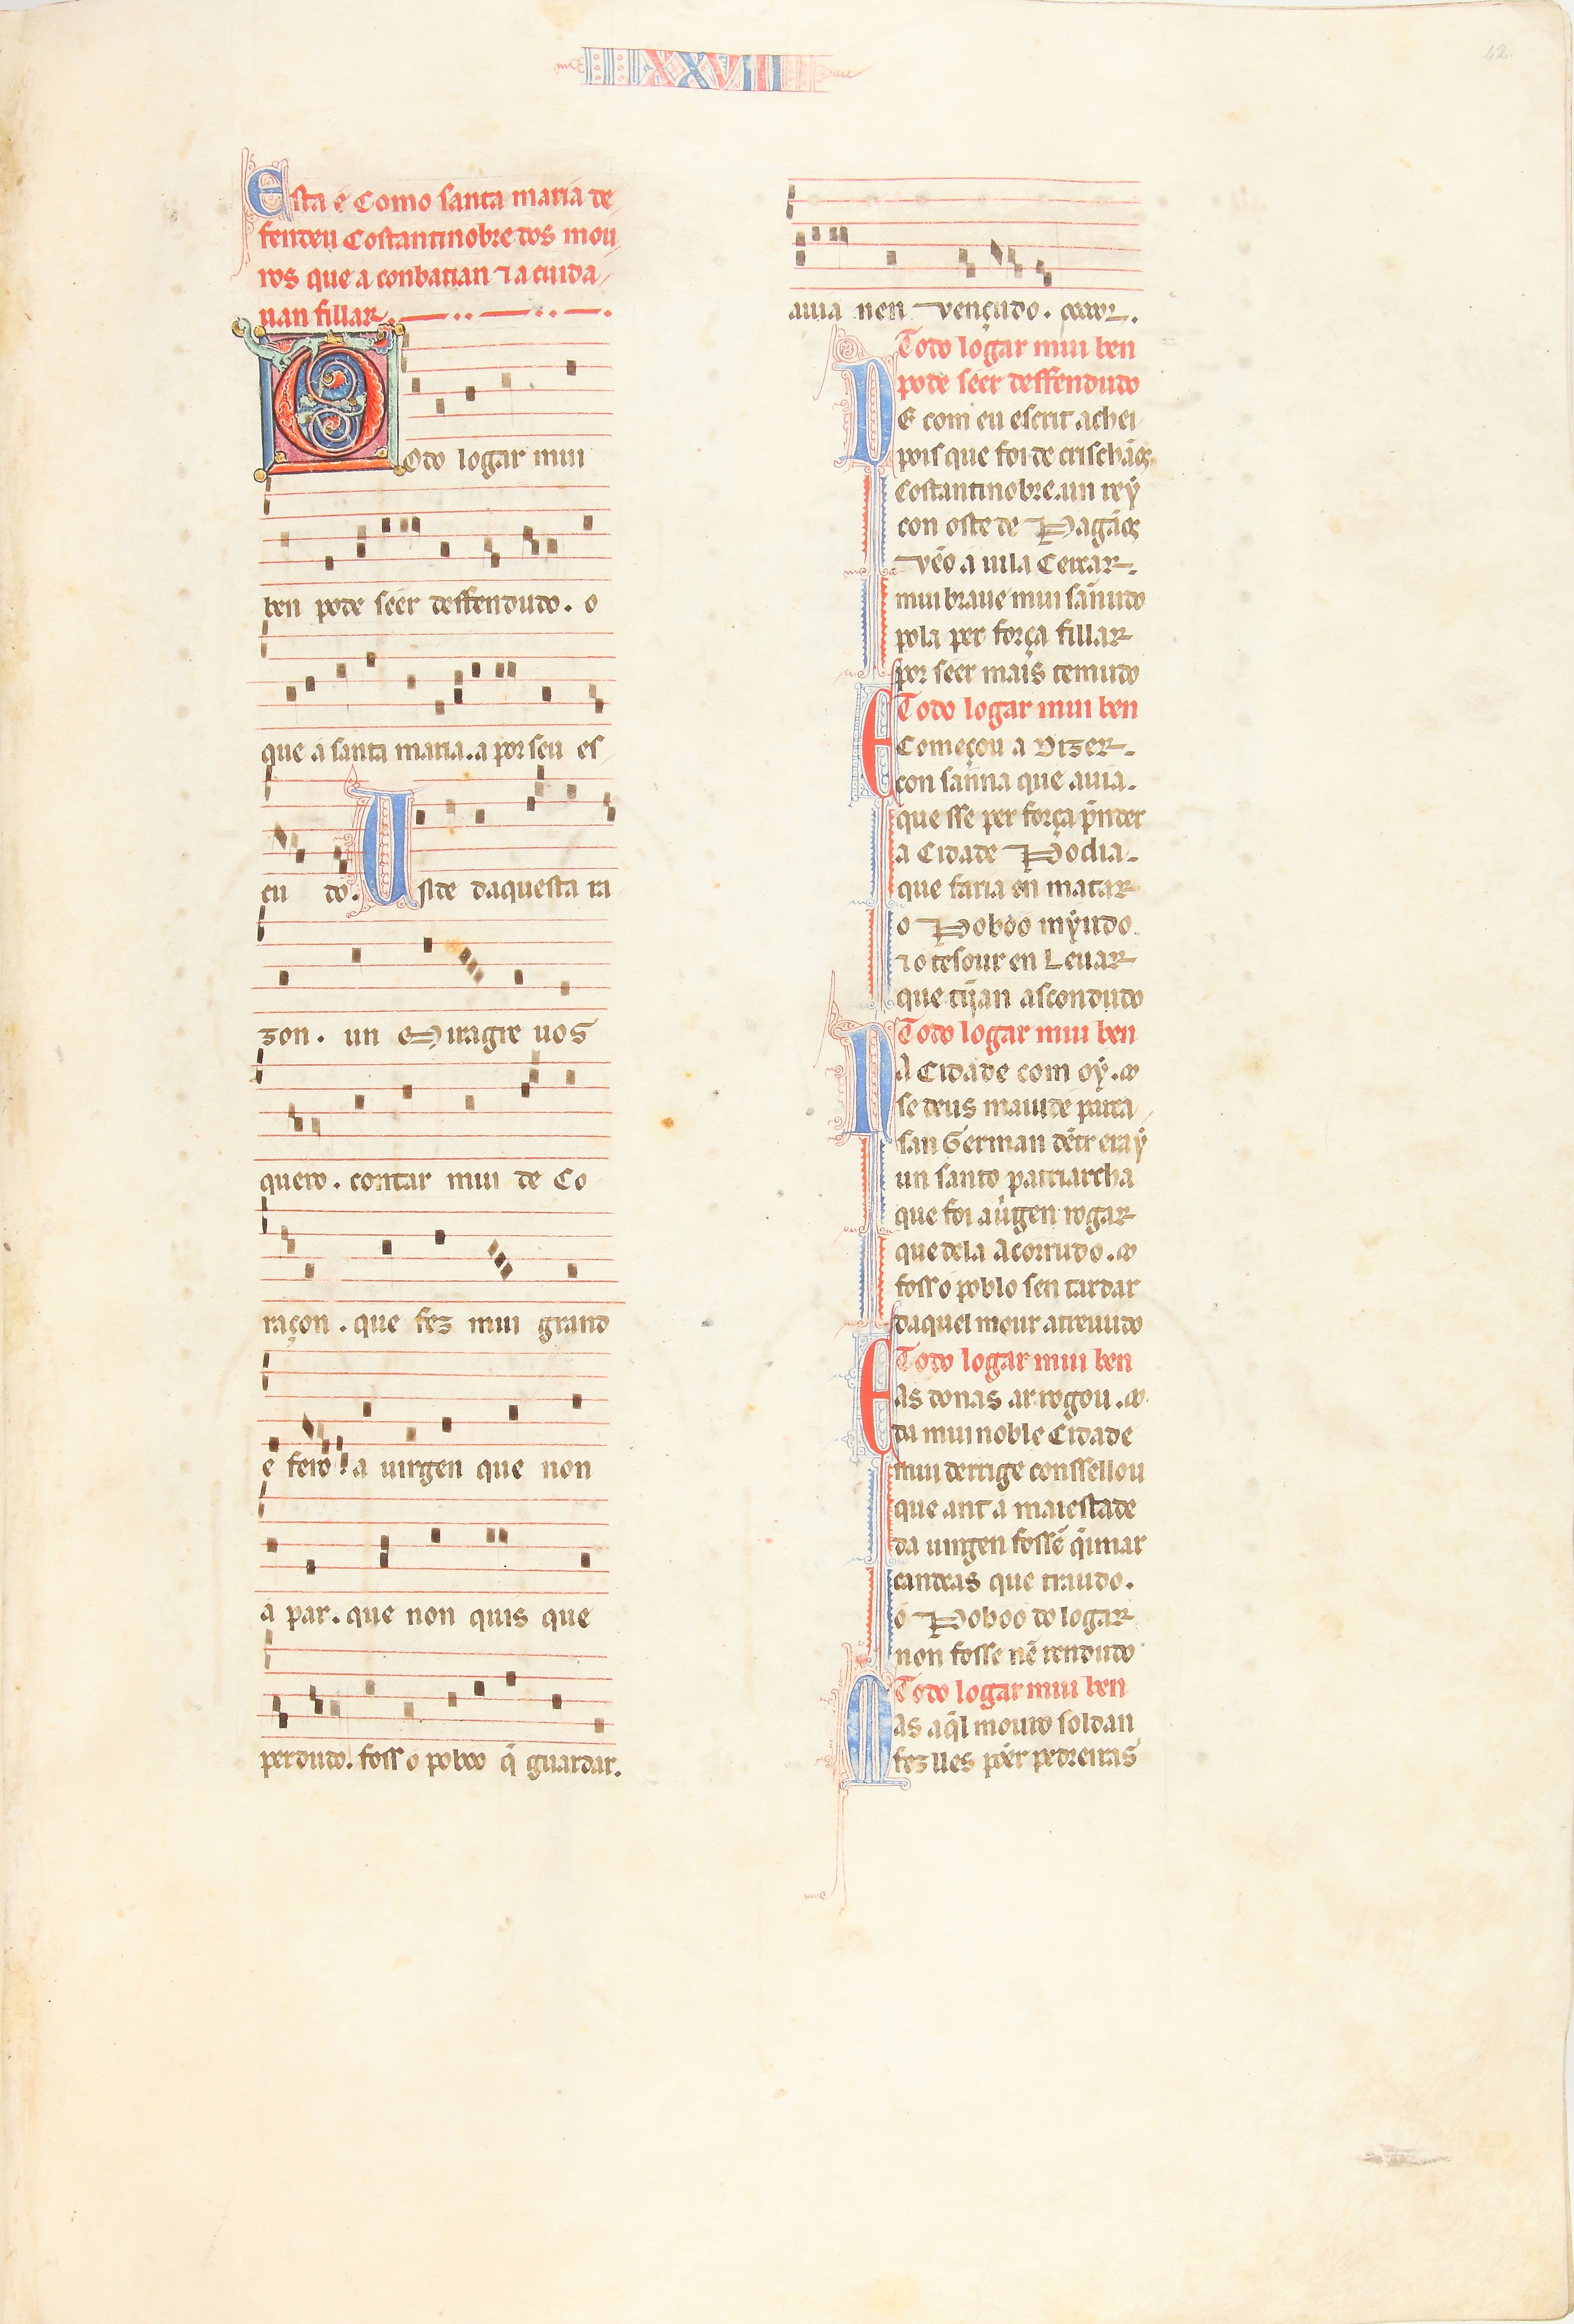 XXVIII
42
Esta é Como santa maria de
fendeu Costantinobre dos mou
ros que a conbatian ⁊ a cuida
uan fillar.
Todo logar mui
ben pode séér deffendudo. o
que á santa maria. a por seu es
cu do. Daste daquesta ra
zon. un Miragre uos
quero. contar mui de Co
raçon. que fez mui grand
e fero. a uirgen que non
á par. que non quis que
perdudo. foss o poboo q̄ guardar.
auia nen vençudo.
Todo logar mui ben
pode séér deffendudo
DE com eu escrit achei
pois que foi de crischãos
Costantinobre. un reý
con oste de Pagãos
vẽo a uila Cercar.
mui braue mui sannudo
pola per força fillar
por seer mais temudo
Todo logar mui ben
E Começou a Dizer.
con sanna que auia.
que sse per força p̄nder
a Cidade Podia.
que faria en matar
o Poboo mýudo.
⁊ o tesour en Leuar
que tijan ascondudo
Todo logar mui ben
NA Cidade com oý.
se deus maiude parta
san German dẽtr eraý
un santo patriarcha
que foi aúirgen rogar
que dela Acorrudo.
foss o poblo sen tardar
daquel mour atreuudo
Todo logar mui ben
E As donas ar rogou.
da mui noble Cidade
mui derrige conssellou
que ant a maiestade
da uirgen fossẽ q̄imar
candeas que traudo.
o Poboo do logar
non fosse nẽ rendudo
Todo logar mui ben
Mas aq̄l mouro soldan
fez lles põer pedreiras